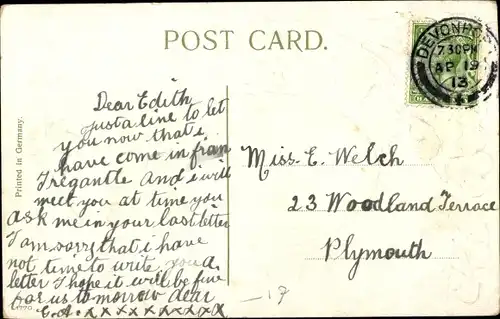 POST CARD.
DEVONPORT
7.30PM
AP 19
13
Printed in Germany.
Dear Edith
just a line to let
you now that i
have come in from
Tregantle and i will
meet you at time you
ask me in your last letter
I am sorry that i have
not time to write you a
letter I hope it will be fine
for us to morrow dear
Miss. E. Welch
23 Woodland Terrace
Plymouth
17